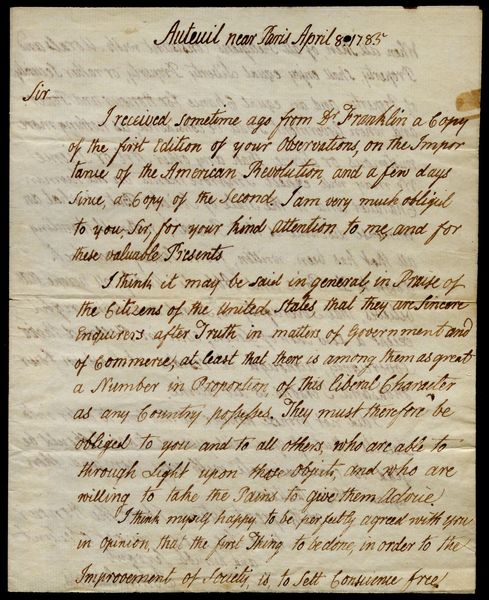 Auteuil near Paris April 8. 1785
Sir
I received, sometime ago from Dr Franklin a Copy
of the first Edition of your Observations, on the Impor
tance of the American Revolution, and a few days
since, a Copy of the Second. I am very much obliged
to you, Sir, for your kind attention to me, and for
these valuable Presents.
I think it may be said in general, in Praise of
the Citizens of the United States, that they are Sincere
Enquirers after Truth in matters of Government and
of Commerce, at least that there is among them as great
a Number in Proportion of this liberal Character
as any Country possesses. They must therefore be
obliged to you and to all others, who are able to
through Light upon these Objects, and who are
willing to take the Pains to give them Advice.
I think myself happy to be perfectly agreed with you
in opinion, that the first Thing to be done, in order to the
Improvement of Society, is, to Sett Consience free